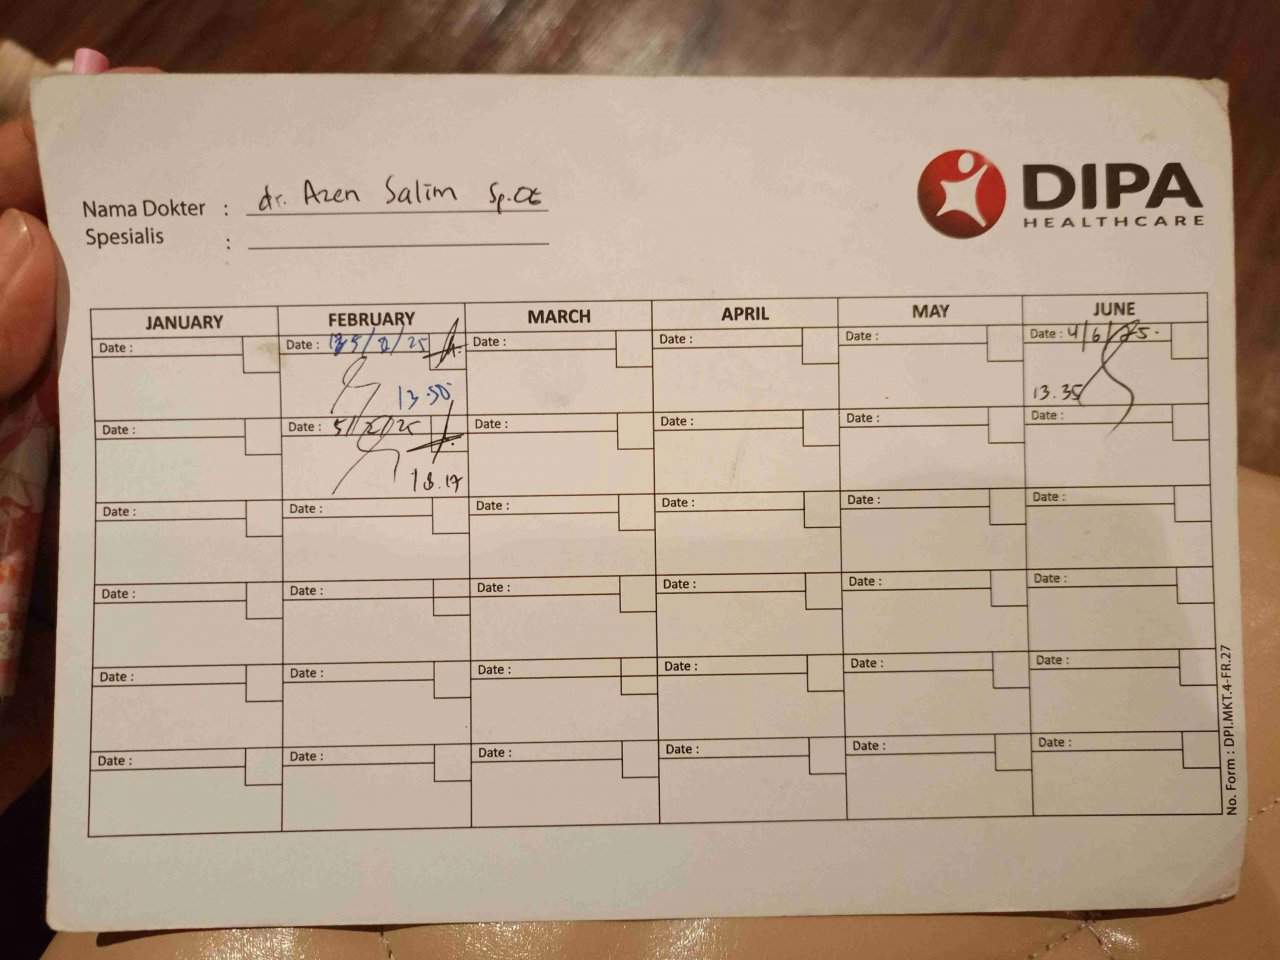 DIPA
HEALTHCARE
Nama Dokter : dr. Azen Salim Sp.OG
Spesialis :
JANUARY FEBRUARY MARCH APRIL MAY JUNE
Date : Date : /2/25 Date : Date : Date : Date : 4/6/25.
13.50 13.35
Date : Date : 5/2/25 Date : Date : Date : Date :
18.17
Date : Date : Date : Date : Date : Date :
Date : Date : Date : Date : Date : Date :
Date : Date : Date : Date : Date : Date :
Date : Date : Date : Date : Date : Date :
No. Form : DPI.MKT.4-FR.27